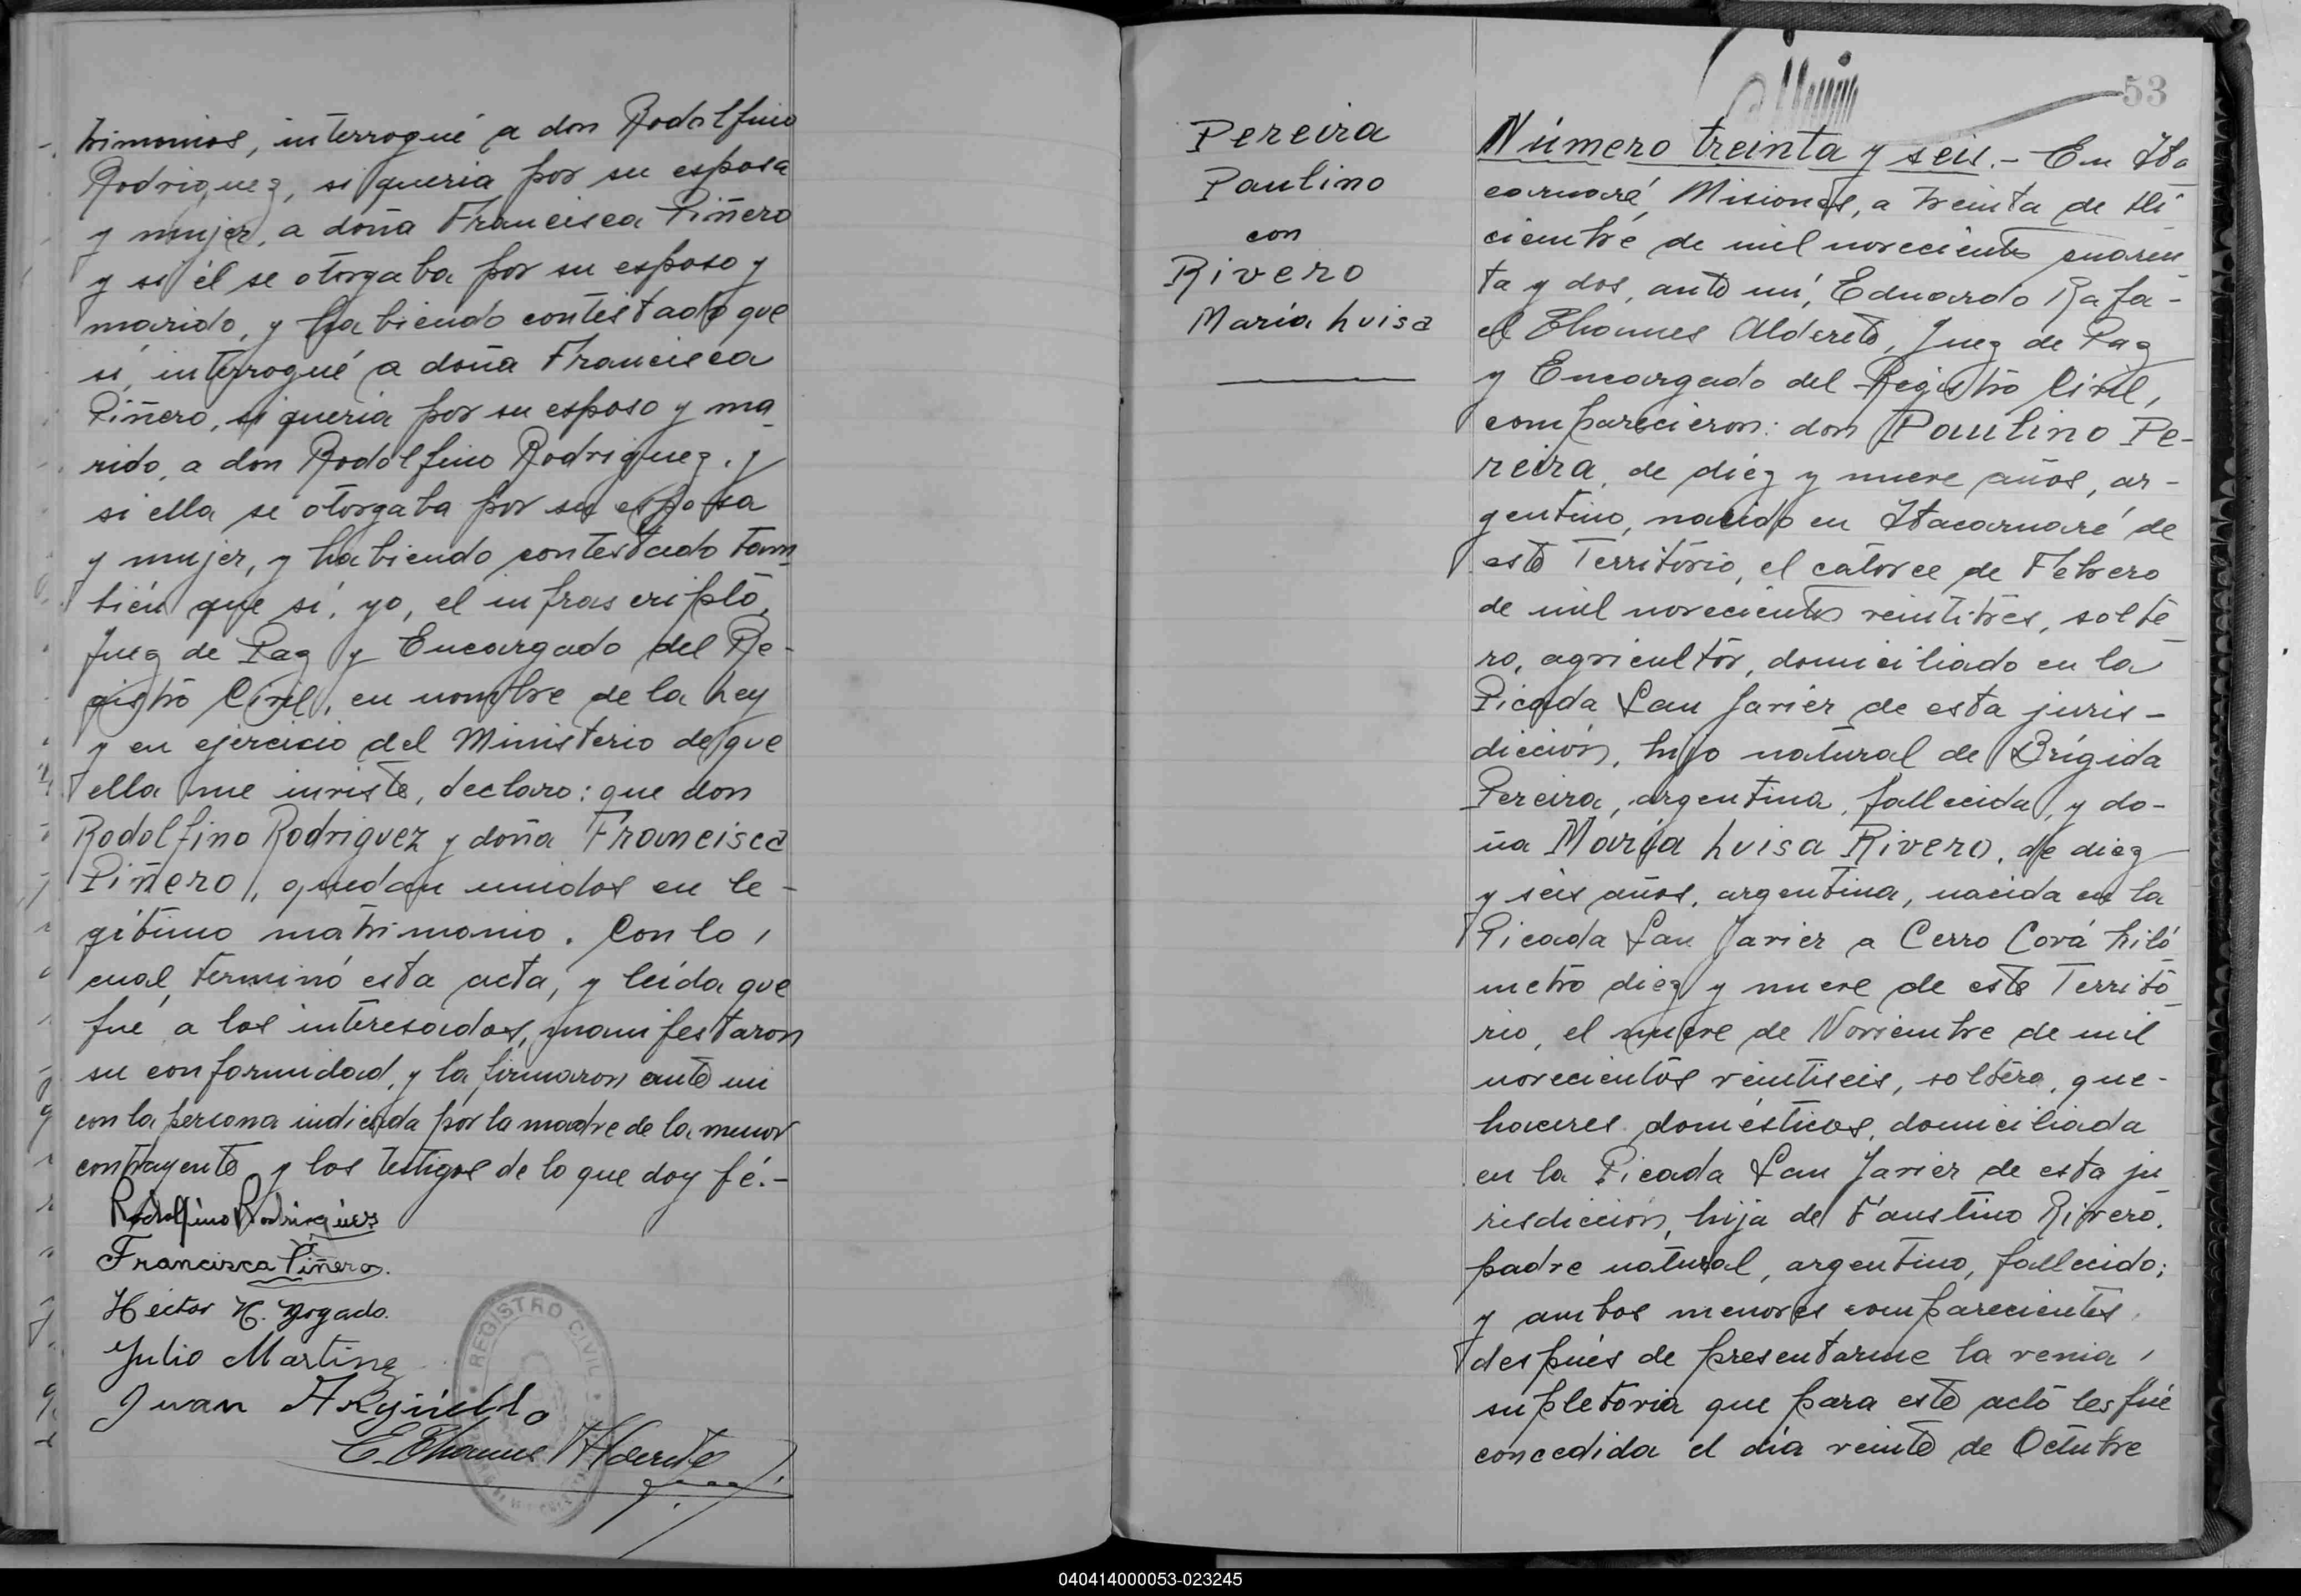 trimonios, interrogué a don Rodolfino
Rodriguez, si queria por su esposa
y mujer, a doña Francisca Piñero
y si él se otorgaba por su esposo y
marido, y habiendo contestado que
sí, interrogué a doña Francisca
Piñero, si queria por su esposo y ma
rido, a don Rodolfino Rodriguez, y
si ella se otorgaba por su esposa
y mujer, y habiendo contestado tam
bién que sí, yo, el infrascripto,
Juez de Paz y Encargado del Re-
gistro Civil, en nombre de la Ley
y en ejercicio del Ministerio de que
ella me inviste, declaro: que don
Rodolfino Rodriguez y doña Francisca
Piñero, quedan unidos en le-
gítimo matrimonio. Con lo
cual, terminó esta acta, y leída que
fué a los interesados, manifestaron
su conformidad, y la firmaron ante mi
con la persona indicada por la madre de la menor
contrayente y los testigos de lo que doy fé.-
Rodolfino Rodriguez
Francisca Piñero.
Héctor N. Yogado.
Julio Martinz
Juan Argüello
E. Thannes Alderete
Juez
REGISTRO CIVIL
Pereira
Paulino
con
Rivero
María Luisa
53
Número treinta y seis.- En Ita
caruaré, Misiones, a treinta de Di
ciembre de mil novecientos cuaren
ta y dos, ante mí, Eduardo Rafa-
el Thannes Alderete, Juez de Paz
y Encargado del Registro Civil,
comparecieron: don Paulino Pe-
reira, de diez y nueve años, ar-
gentino, nacido en Itacaruaré de
este Territorio, el catorce de Febrero
de mil novecientos veintitres, solte
ro, agricultor, domiciliado en la
Picada San Javier de esta juris-
dicción, hijo natural de Brígida
Pereira, argentina, fallecida, y do-
ña María Luisa Rivero, de diez
y seis años, argentina, nacida en la
Picada San Javier a Cerro Corá kiló
metro diez y nueve de este Territo
rio, el nueve de Noviembre de mil
novecientos veintiseis, soltera, que-
haceres domésticos, domiciliada
en la Picada San Javier de esta ju
risdicción, hija de Faustino Rivero,
padre natural, argentino, fallecido;
y ambos menores comparecientes
después de presentarme la venia
supletoria que para este acto les fué
concedida el día veinte de Octubre
040414000053-023245